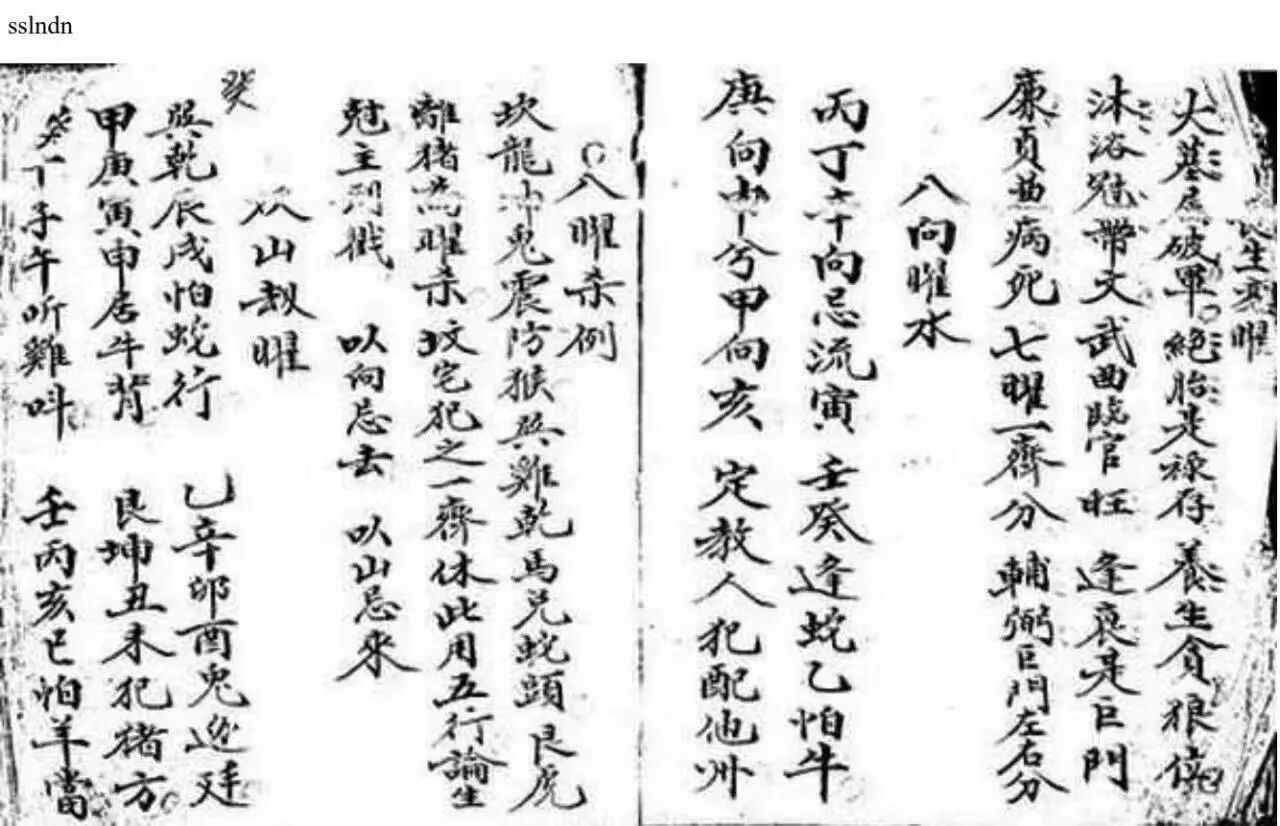 sslndn
長生亮曜
火墓是破軍 絕胎是祿存 養生貪狼倚
沐浴冠帶文 武曲臨官旺 逢衰是巨門
廉貞並病死 七曜一齊分 輔弼巨門左右分
八向曜水
丙丁午向忌流寅 壬癸逢蛇乙怕牛
庚向申兮甲向亥 定教人犯配他州
八曜杀例
坎龍冲兎震防猴巽雞乾馬兌蛇頭艮虎
離猪為曜杀坟宅犯之一齊休此用五行論生
尅主列戮 以向忌去 以山忌來
山刼曜
巽乾辰戌怕蛇行 乙辛卯酉兎
甲庚寅申居牛背 艮坤丑未犯猪方
癸
丁子午听雞呌 壬丙亥巳怕羊當